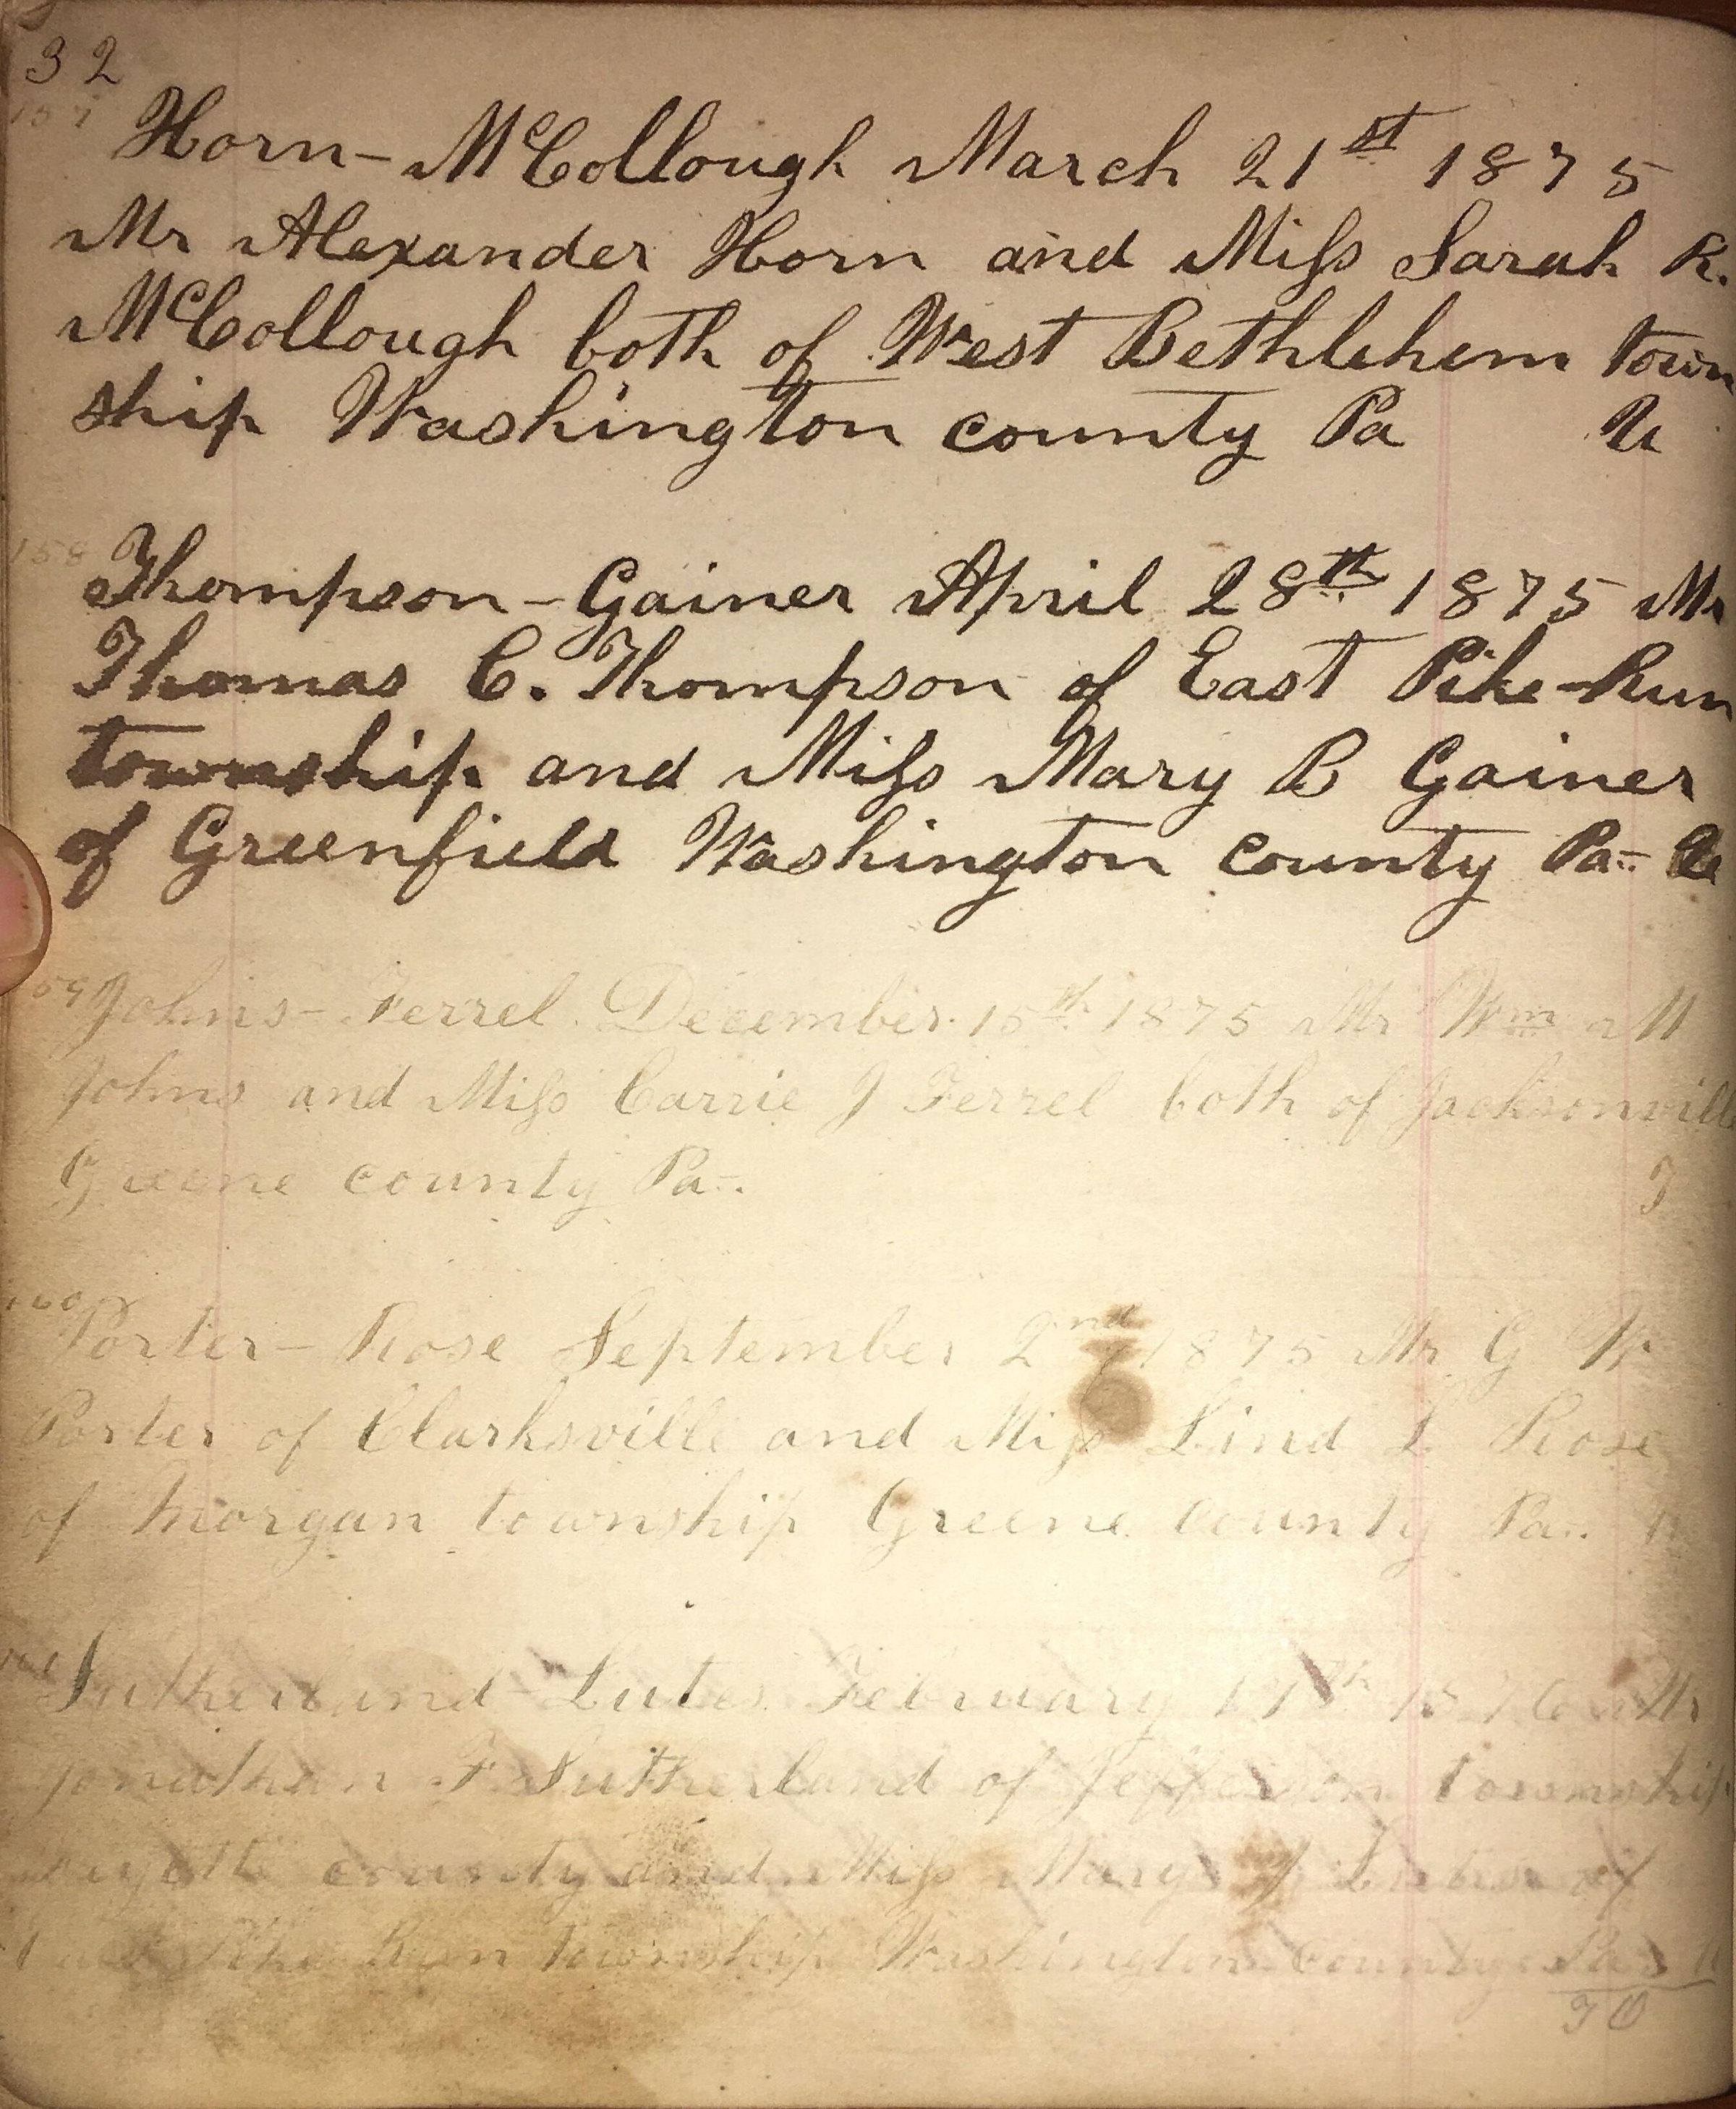 32
157
Horn - McCollough March 21st 1875
Mr Alexander Horn and Miss Sarah R.
McCollough both of West Bethlehem town
ship Washington county Pa
158
Thompson - Gainer April 28th 1875 Mr
Thomas C. Thompson of East Pike-Run
township and Miss Mary B Gainer
of Greenfield Washington county Pa
Johns - Ferrel December 15th 1875 Mr Wm M
Johns and Miss Carrie J Ferrel both of Jacksonville
Greene county Pa
160
Porter - Rose September 2nd 1875 Mr G W
Porter of Clarksville and Miss Lind L Rose
of Morgan township Greene county Pa
Sutherland February 17th 1876 Mr
Jonathan F Sutherland of Jefferson township
county and Miss Mary of
Pike Run township Washington county Pa